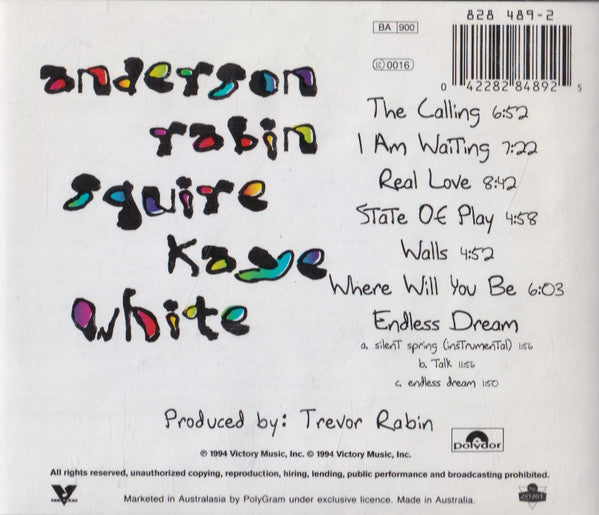 828 489-2
BA 900
LC 0016
0 42282 84892 5
anderson
rabin
squire
kaye
white
The Calling 6:52
I Am Waiting 7:22
Real Love 8:42
State Of Play 4:58
Walls 4:52
Where Will You Be 6:03
Endless Dream
a. silent spring (instrumental) 1:56
b. Talk 11:56
c. endless dream 1:50
Produced by: Trevor Rabin
Polydor
℗ 1994 Victory Music, Inc. © 1994 Victory Music, Inc.
All rights reserved, unauthorized copying, reproduction, hiring, lending, public performance and broadcasting prohibited.
Marketed in Australasia by PolyGram under exclusive licence. Made in Australia.